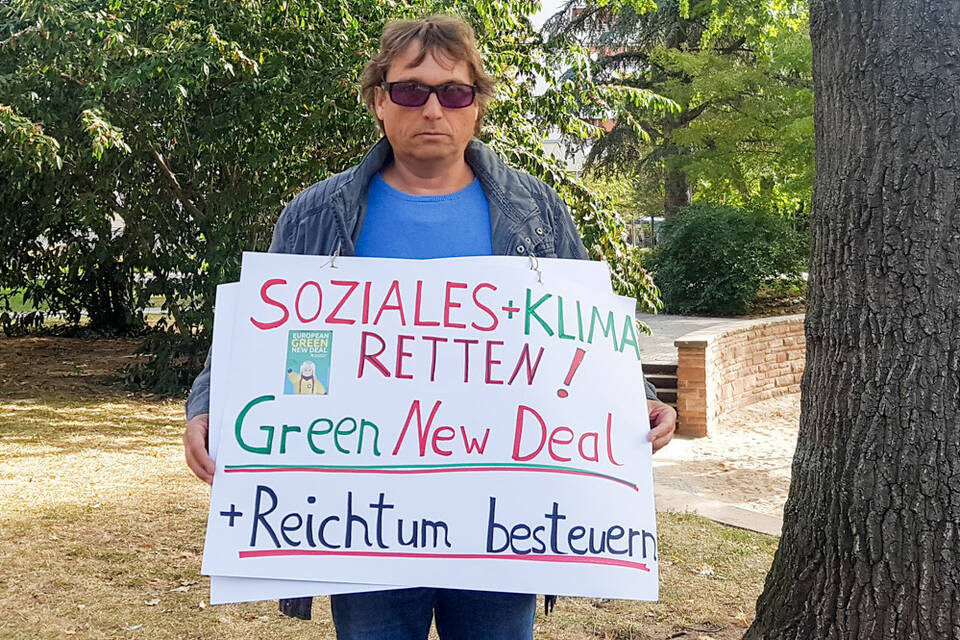 SOZIALES+KLIMA
RETTEN!
EUROPEAN
GREEN
NEW DEAL
Green New Deal
+Reichtum besteuern